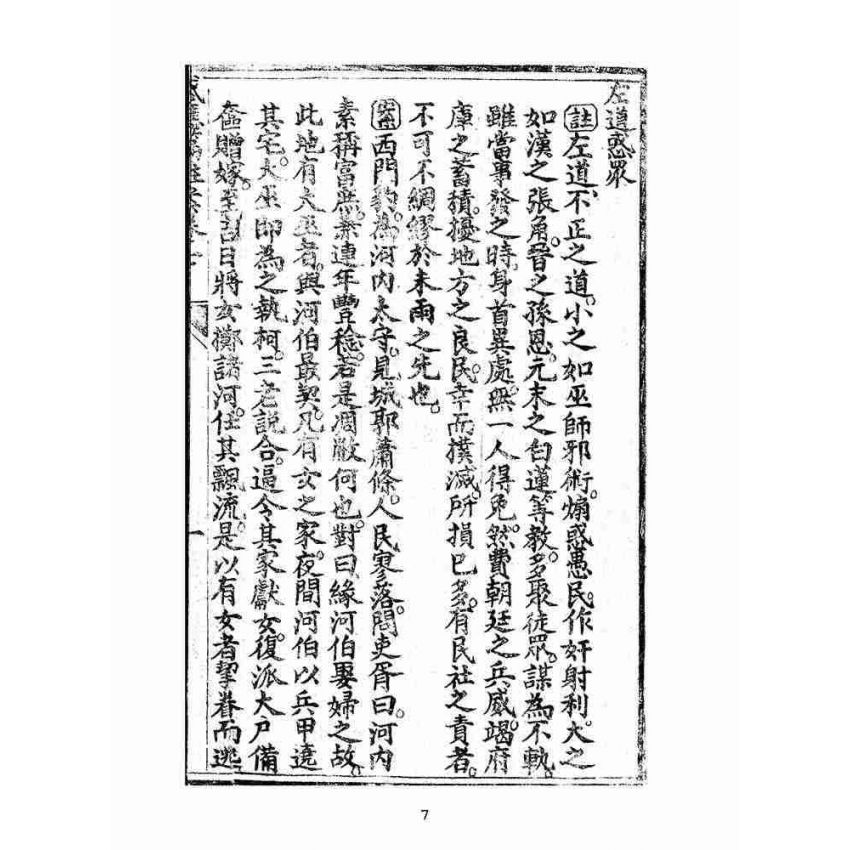 左道惑眾
註左道、不正之道。小之如巫師邪術。煽惑愚民。作奸射利。大之
如漢之張角。晉之孫恩。元末之白蓮等教。多聚徒眾。謀為不軌。
雖當事發之時。身首異處。無一人得免。然費朝廷之兵威。竭府
庫之蓄積。擾地方之良民。幸而撲滅。所損已多。有民社之責者。
不可不綢繆於未雨之先也。
案西門豹。為河內太守。見城郭蕭條。人民寥落。問吏胥曰。河內
素稱富庶。兼連年豐稔。若是凋敝何也。對曰緣河伯娶婦之故。
此地有大巫者。與河伯最契。凡有女之家。夜間河伯以兵甲遶
其宅。大巫卽為之執柯。三老說合。逼令其家獻女。復派大戶備
奩贈嫁。至吉日將女擲諸河。任其飄流。是以有女者挈眷而逃
一
7